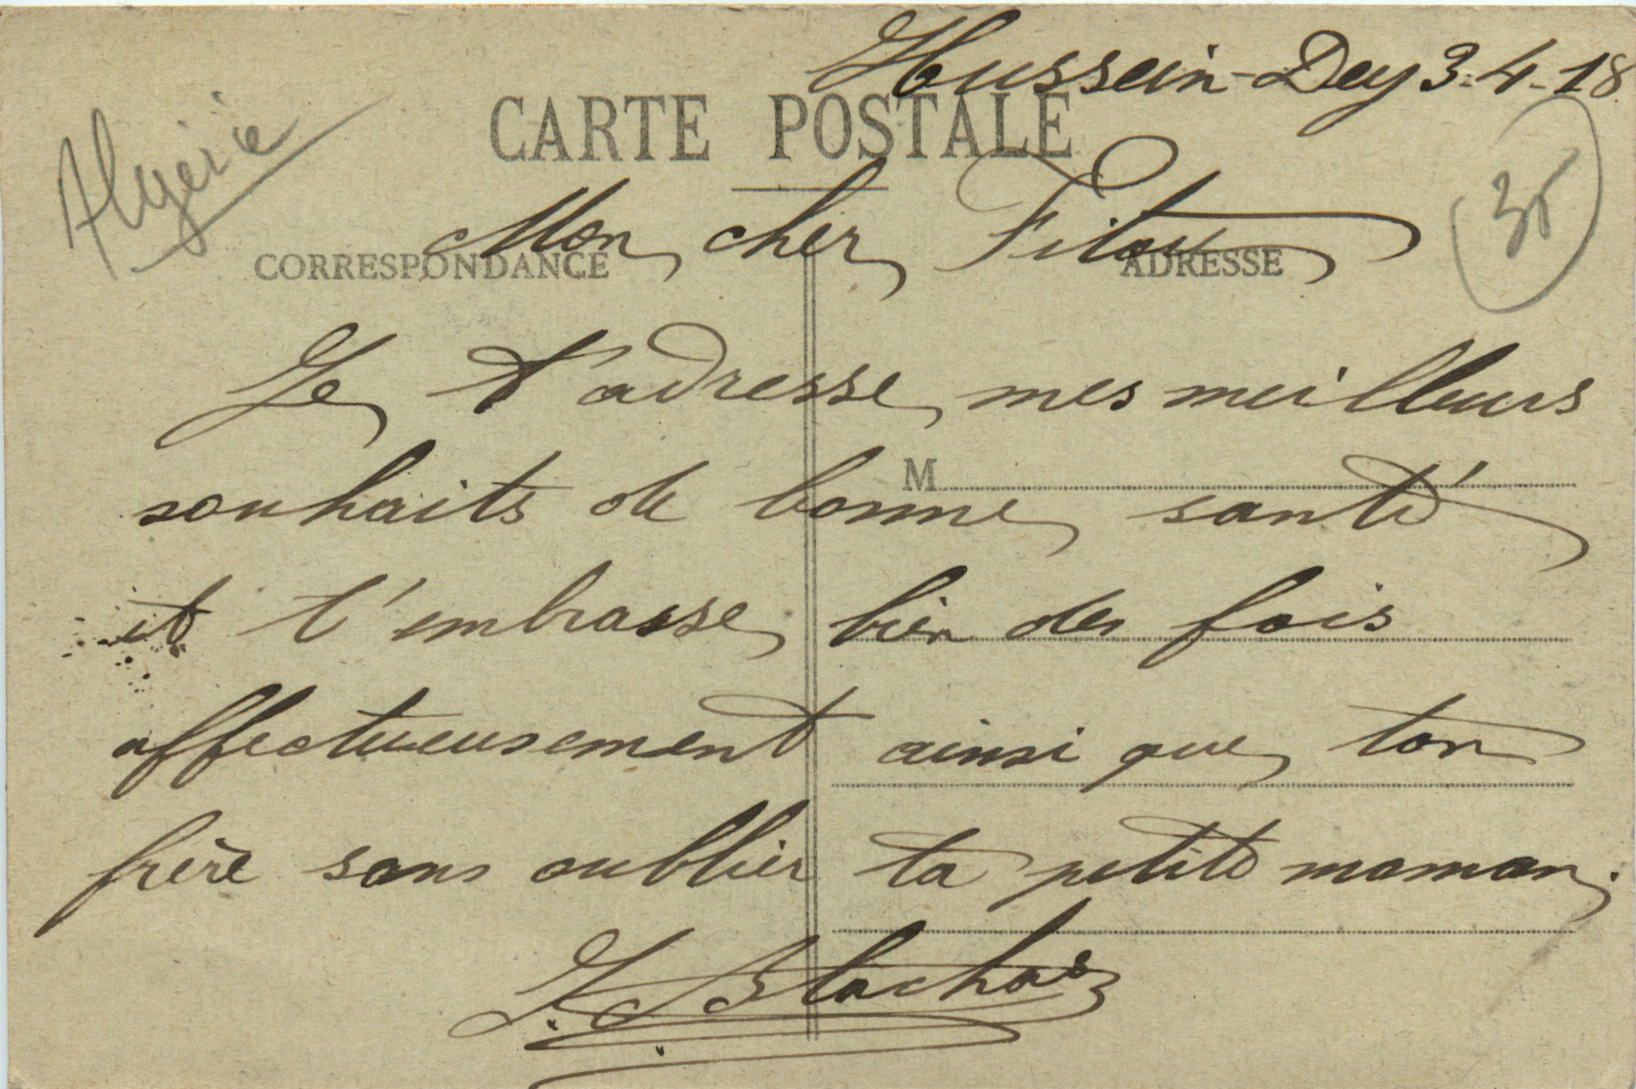 Hussein-Dey 3-4-18.
Algérie
CARTE POSTALE
35
Mon cher
CORRESPONDANCE
ADRESSE
Je t'adresse mes meilleurs
M
souhaits de bonne santé
et t'embrasse bien des fois
affectueusement ainsi que ton
frère sans oublier ta petite maman.